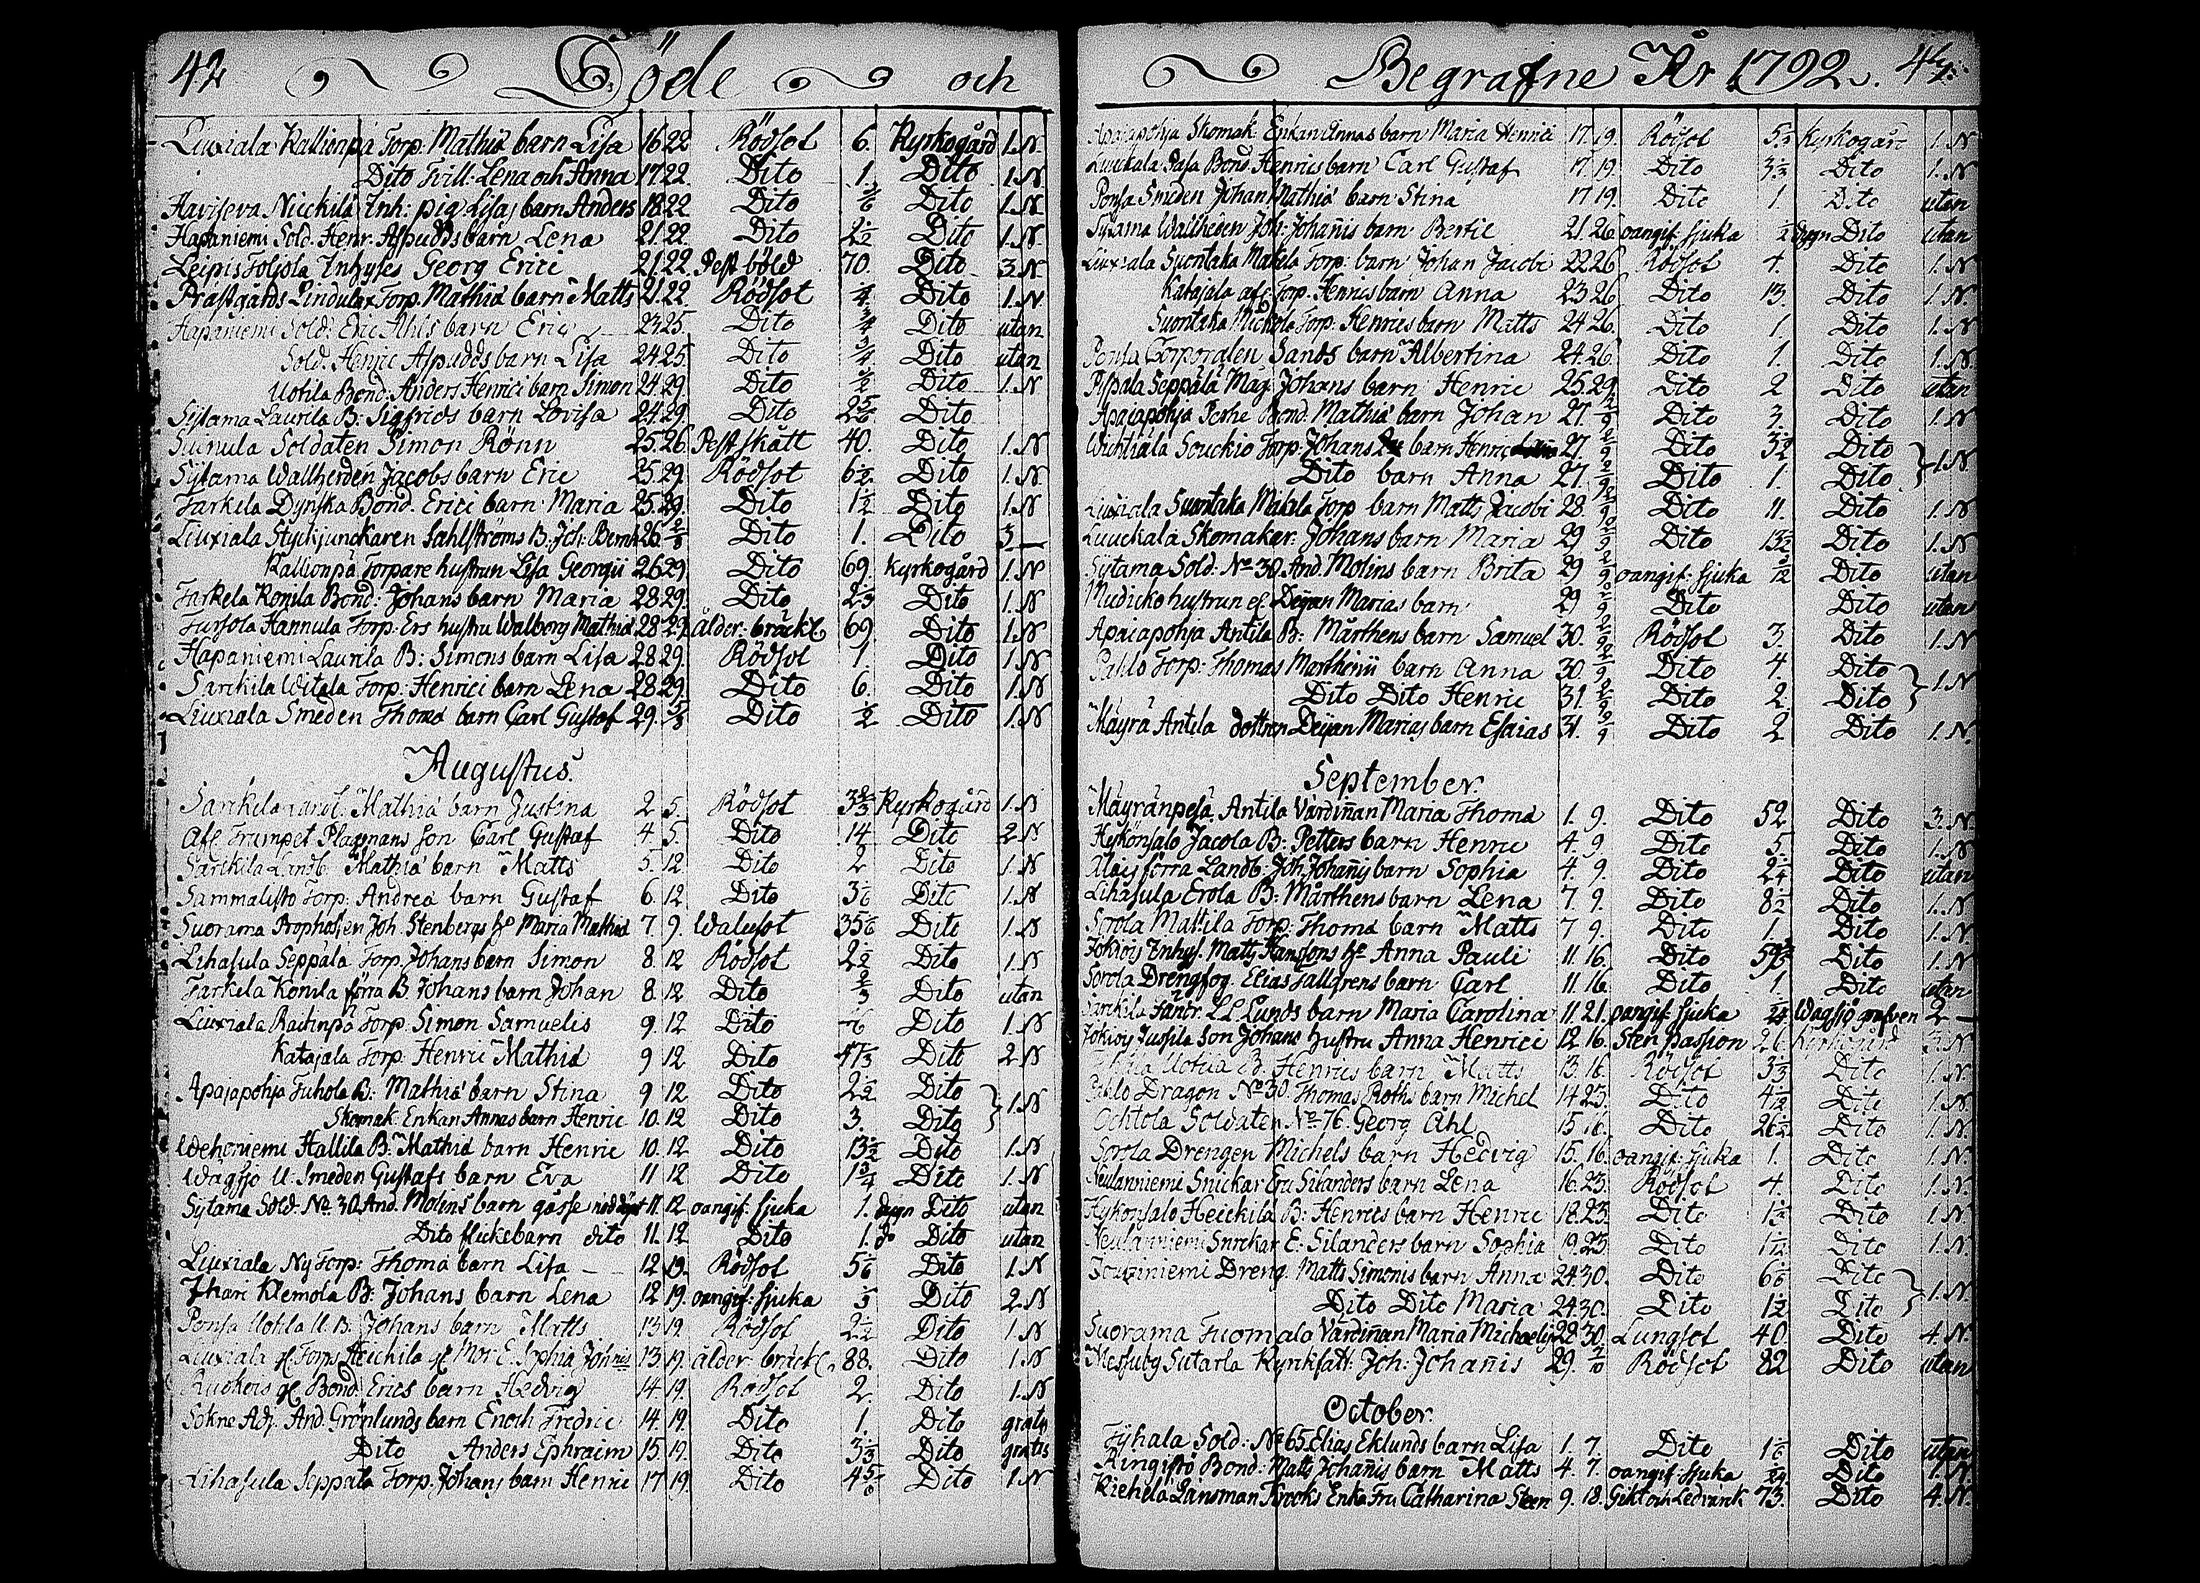 42 Döde och
Liuxiala Kallionpä Torp. Mathiæ barn Lisa 16 22 Rödsot 6. Kyrkogård 1. N.
Dito Tvill: Lena och Anna 17 22. Dito 1. Dito 1. N
Haviseva Nickilä Inh: pig. Lisas barn Anders 18 22 Dito Dito 1. N.
Hapaniemi Sold: Henr: Aspudds barn Lena 21. 22. Dito 2 1/2 Dito 1. N
Leipis Toljola Inhyses Georg Erici 21. 22. Pest böld 70. Dito 3. N.
Prästgårds Lindula Torp. Mathiæ barn Matts 21. 22. Rödsot Dito 1. N
Hapaniemi Sold: Eric Ahls barn Eric 23 25. Dito 3/4 Dito utan
Sold. Henric Aspudds barn Lisa 24 25. Dito 3/4 Dito utan
Uotila Bond: Anders Henrici barn Simon 24. 29. Dito 1/2 Dito 1. N
Sijtama Laurila B: Sigfrids barn Lovisa 24. 29. Dito 2 5/6 Dito
Suinula Soldaten Simon Rönn 25. 26. Pest skått 40. Dito 1. N
Sijtama Wallherden Jacobs barn Eric 25. 29. Rödsot 6 1/2. Dito 1. N.
Tarkela Dynska Bond. Erici barn Maria 25. 29. Dito 1 1/2 Dito 1. N
Liuxiala Styckjunckaren Sahlströms B: Joh: Bernh 26 2/8 Dito 1. Dito 3
Kallionpä Torpare hustrun Lisa Georgii 26 29. Dito 69. Kyrkogård 1. N
Tarkela Komila Bond: Johans barn Maria 28. 29. Dito 2 2/3 Dito 1. N
Tursola Hannula Torp: Ers hustru Walborg Mathiæ 28 29 ålder: bräckl. 69. Dito 1. N
Hapaniemi Laurila B: Simons barn Lisa 28 29. Rödsot 1. Dito 1. N
Sarckila Witala Torp: Henrici barn Lena 28. 29. Dito 6. Dito 1. N
Liuxiala Smeden Thomæ barn Carl Gustaf 29. 5/8 Dito 1/2 Dito 1. N
Augustus.
Sarckila Landb. Mathiæ barn Justina 2. 5. Rödsot 3 2/3 Kyrkogård 1. N
Afl. Trumpet Plagmans son Carl Gustaf 4. 5. Dito 14 Dito 2. N
Sarckila Landb. Mathiæ barn Matts 5. 12. Dito 2 Dito 1. N
Sammalisto Torp: Andreæ barn Gustaf 6. 12 Dito 3 1/6 Dito 1. N
Suorama Prophossen Joh. Stenbergs H:o Maria Mathiæ 7. 9. Walusot 35 1/6 Dito 1. N
Lihasula Seppälä Torp. Johans barn Simon 8. 12 Rödsot 2 1/2 Dito 1. N
Tarkela Komila förra B. Johans barn Johan 8. 12 Dito 2/3 Dito utan
Liuxiala Raitinpä Torp. Simon Samuelis 9. 12 Dito Dito 1. N
Katajala Torp: Henric Mathiæ 9 12 Dito Dito 2. N
Apajapohja Juhola B: Mathiæ barn Stina 9 12 Dito 2 1/2 Dito
Skomak. Enkan Annas barn Henric 10. 12 Dito 3. Dito 1. N
Wehoniemi Hallila B: Mathiæ barn Henric 10. 12 Dito 13 1/2 Dito 1. N
Wägsjö U: Smeden Gustafs barn Eva 11 12 Dito 1 3/4 Dito 1. N
Sijtama Sold: No. 30. And. Molins barn gosse nöddöpt 11. 12 oangif: sjuka 1. dygn Dito utan
Dito flickebarn dito 11. 12 Dito 1. d:o Dito utan
Liuxiala Ny Torp: Thomæ barn Lisa 12 19. Rödsot 5 1/6 Dito 1. N
Ihari Klemola B: Johans barn Lena 12 19. oangif: sjuka Dito 2. N
Ponsa Uotila U. B: Johans barn Matts 13 19. Rödsot 2 1/2 Dito 1. N
Liuxiala gl Torps Heickila gl Mor E. Sophia Johnis 13. 19. ålder bräckl. 88. Dito 1. N
Ruokois gl. Bond. Erics barn Hedvig 14. 19. Rödsot 2. Dito 1. N
Sokne Adj. And. Grönlunds barn Enoch Fredric 14. 19. Dito 1. Dito gratis
Dito Anders Ephraim 15. 19. Dito 3 1/3 Dito gratis
Lihasula Seppälä Torp: Johans barn Henric 17 19. Dito 4 5/6 Dito 1. N
Begrafne År 1792.
Apajapohja Skomak: Enkan Annas barn Maria Henrici 17. 19. Rödsot Kyrkogård 1. N
Liuckala Pasa Bond. Henrics barn Carl Gustaf 17. 19. Dito Dito 1. N.
Ponsa Smeden Johan Mathiæ barn Stina 17 19. Dito 1. Dito utan
Sijtama Wallheden Joh: Johañis barn Bertil 21. 26 oangif: sjuka 1/2 dygn Dito utan
Liuxiala Suontaka Makela Torp: barn Johan Jacobi 22 26 Rödsot 4. Dito 1. N.
Katajala afl. Torp. Henrics barn Anna 23 26 Dito 13. Dito 1. N.
Suontaka Mickola Torp: Henrics barn Matts 24 26. Dito 1 Dito 1. N.
Ponsa Corporalen Sands barn Albertina 24. 26 Dito 1. Dito 1. N.
Pispala Seppälä Måg. Johans barn Henric 25. 29 Dito 2 Dito utan
Apajapohja Perhe Bond. Mathiæ barn Johan 27. 2/9 Dito 3. Dito 1. N
Wichtiala Souckio Torp: Johans barn Henric 27. 2/9 Dito Dito
Dito barn Anna 27. 2/9 Dito 1. Dito 1. N
Liuxiala Suontaka Makela Torp barn Matts Jacobi 28. 2/9 Dito 11. Dito 1. N
Liuckala Skomaker: Johans barn Maria 29 2/9 Dito 13 1/2 Dito 1. N
Sijtama Sold: No 30. And. Molins barn Brita 29 2/9 oangif: sjuka Dito utan
Mudicko hustrun el. Deijan Marias barn 29 2/9 Dito Dito utan
Apajapohja Antila B: Mårthens barn Samuel 30. 2/9 Rödsot 3. Dito 1. N
Pahlo Torp: Thomas Marthini barn Anna 30. 2/9 Dito 4. Dito
Dito Dito Henric 31. 2/9 Dito 2. Dito 1. N.
Mäyrä Antila dottren Deijan Marias barn Esaias 31. 2/9 Dito 2 Dito 1. N.
September.
Mäyränpesä Antila Värdiñan Maria Thomæ 1. 9. Dito 52 Dito 3. N.
Hyrkönsalo Jacola B: Petters barn Henric 4. 9 Dito 5 Dito 1. N
förra Landb. Joh. Johañis barn Sophia 4. 9. Dito Dito utan
Lihasula Erola B: Mårthens barn Lena 7 9. Dito 8 1/2 Dito 1. N
Sorola Mattila Torp: Thomæ barn Matts 7 9. Dito 1. Dito 1. N.
Jokiois Inhys. Matts Hanssons H:o Anna Pauli 11. 16. Dito Dito 1. N
Sorola Drengfog: Elias Tallgrens barn Carl 11. 16. Dito 1. Dito utan
Sarckila Fäntr: L L Lunds barn Maria Carolina 11. 21. oangif: sjuka Wågsjö grafven 2
Jokiois Jussila Son Johans hustru Anna Henrici 12 16. Sten passion 26 Kyrkogård 3. N.
Uotila B. Henrics barn Matts 13. 16. Rödsot 3 1/3 Dito 1. N.
Pahlo Dragon No 30. Thomas Roths barn Michel 14 23. Dito 4 1/12 Dito 1. N
Ochtola Soldaten No 76. Georg Ahl 15 16. Dito 26 1/2 Dito 1. N.
Sorola Drengen Michels barn Hedvig 15. 16. oangif: sjuka 1. Dito 1. N.
Neulaniemi Snickar Er: Silanders barn Lena 16. 23. Rödsot 4. Dito 1. N.
Hykönsalo Heickila B: Henrics barn Henric 18. 23. Dito Dito 1. N
Neulanniemi Snickar E: Silanders barn Sophia 19. 23. Dito 1 1/12 Dito 1. N
Joutziniemi Dreng. Matts Simonis barn Anna 24. 30. Dito 6 1/6 Dito
Dito Dito Maria 24. 30. Dito 1 1/2 Dito 1. N.
Suorama Tuomala Värdiñan Maria Michaelis 28 30. Lungsot 40 Dito 4. N.
Messuby Sutarla Kyrckfatt: Joh: Johañis 29. 2/10 Rödsot 82 Dito utan
October.
Tyhala Sold: No 65. Elias Eklunds barn Lisa 1. 7. Dito 1 1/6 Dito utan
Ringistö Bond: Matts Johañis barn Matts 4. 7. oangif: sjuka Dito 1. N.
Kichela Länsman Krooks Enka Fru Catharina Steen 9. 18. Gikt och Ledvärk 73. Dito 4. N.